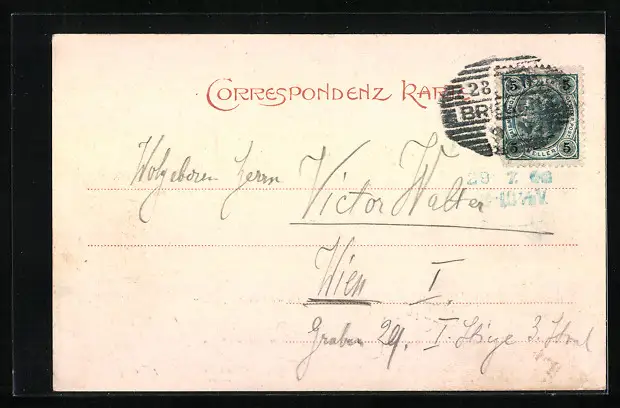 CORRESPONDENZ KARTE
28
BRE
5 5
HELLER
5 5
29 7 
Wolgeboren Herrn
Victor Walter
Wien I.
Graben 29. I Stiege 3. Stock